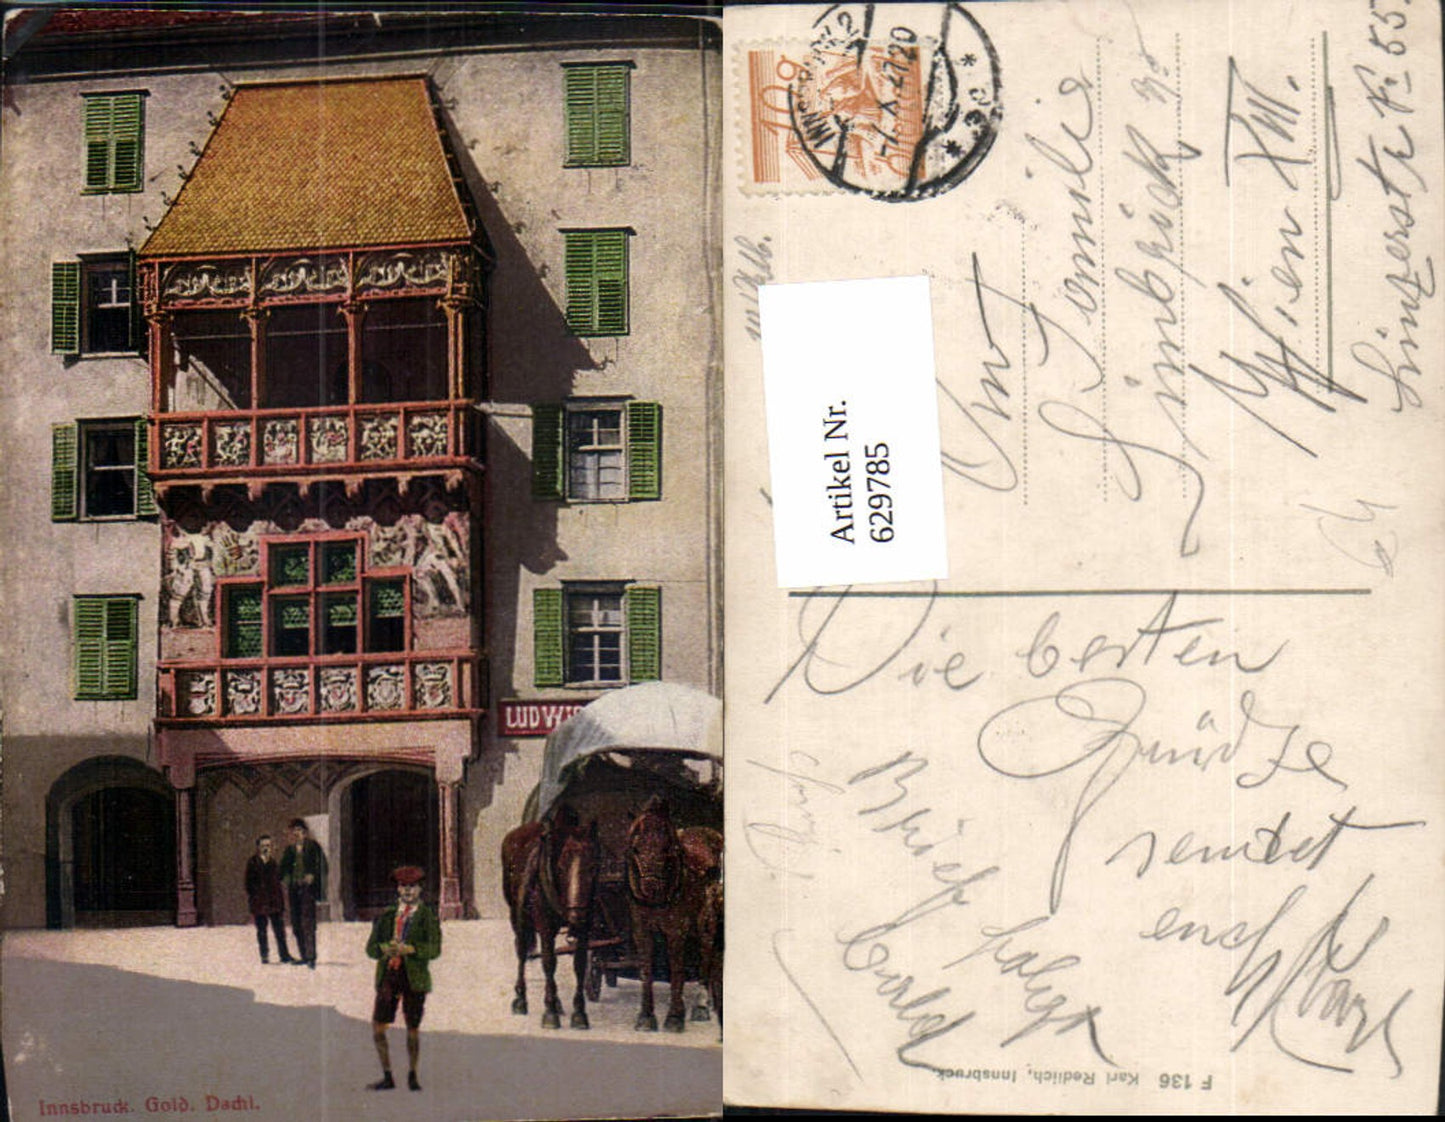 LUDWI
Innsbruck. Gold. Dachl.
10g
INNSBRUCK 2
-7.X.27.20
* 3c *
Artikel Nr.
629785
Familie
Wien XIII.
Linzerstr. 55.
Die besten
Grüsse
sendet
euch
Brief folgt
bald
F 136 Karl Redlich, Innsbruck.